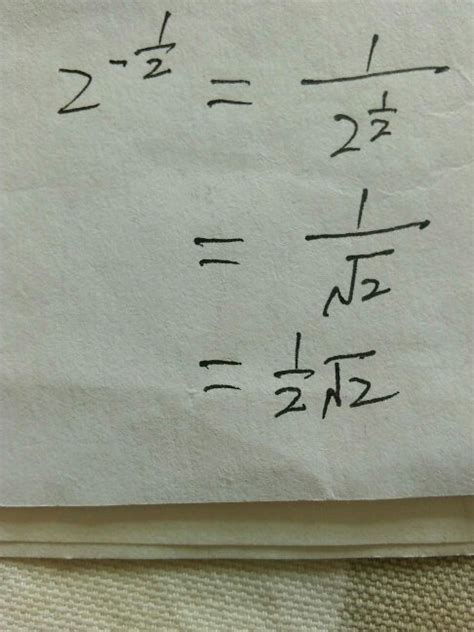 2^{-\frac{1}{2}} = \frac{1}{2^{\frac{1}{2}}}
= \frac{1}{\sqrt{2}}
= \frac{1}{2}\sqrt{2}